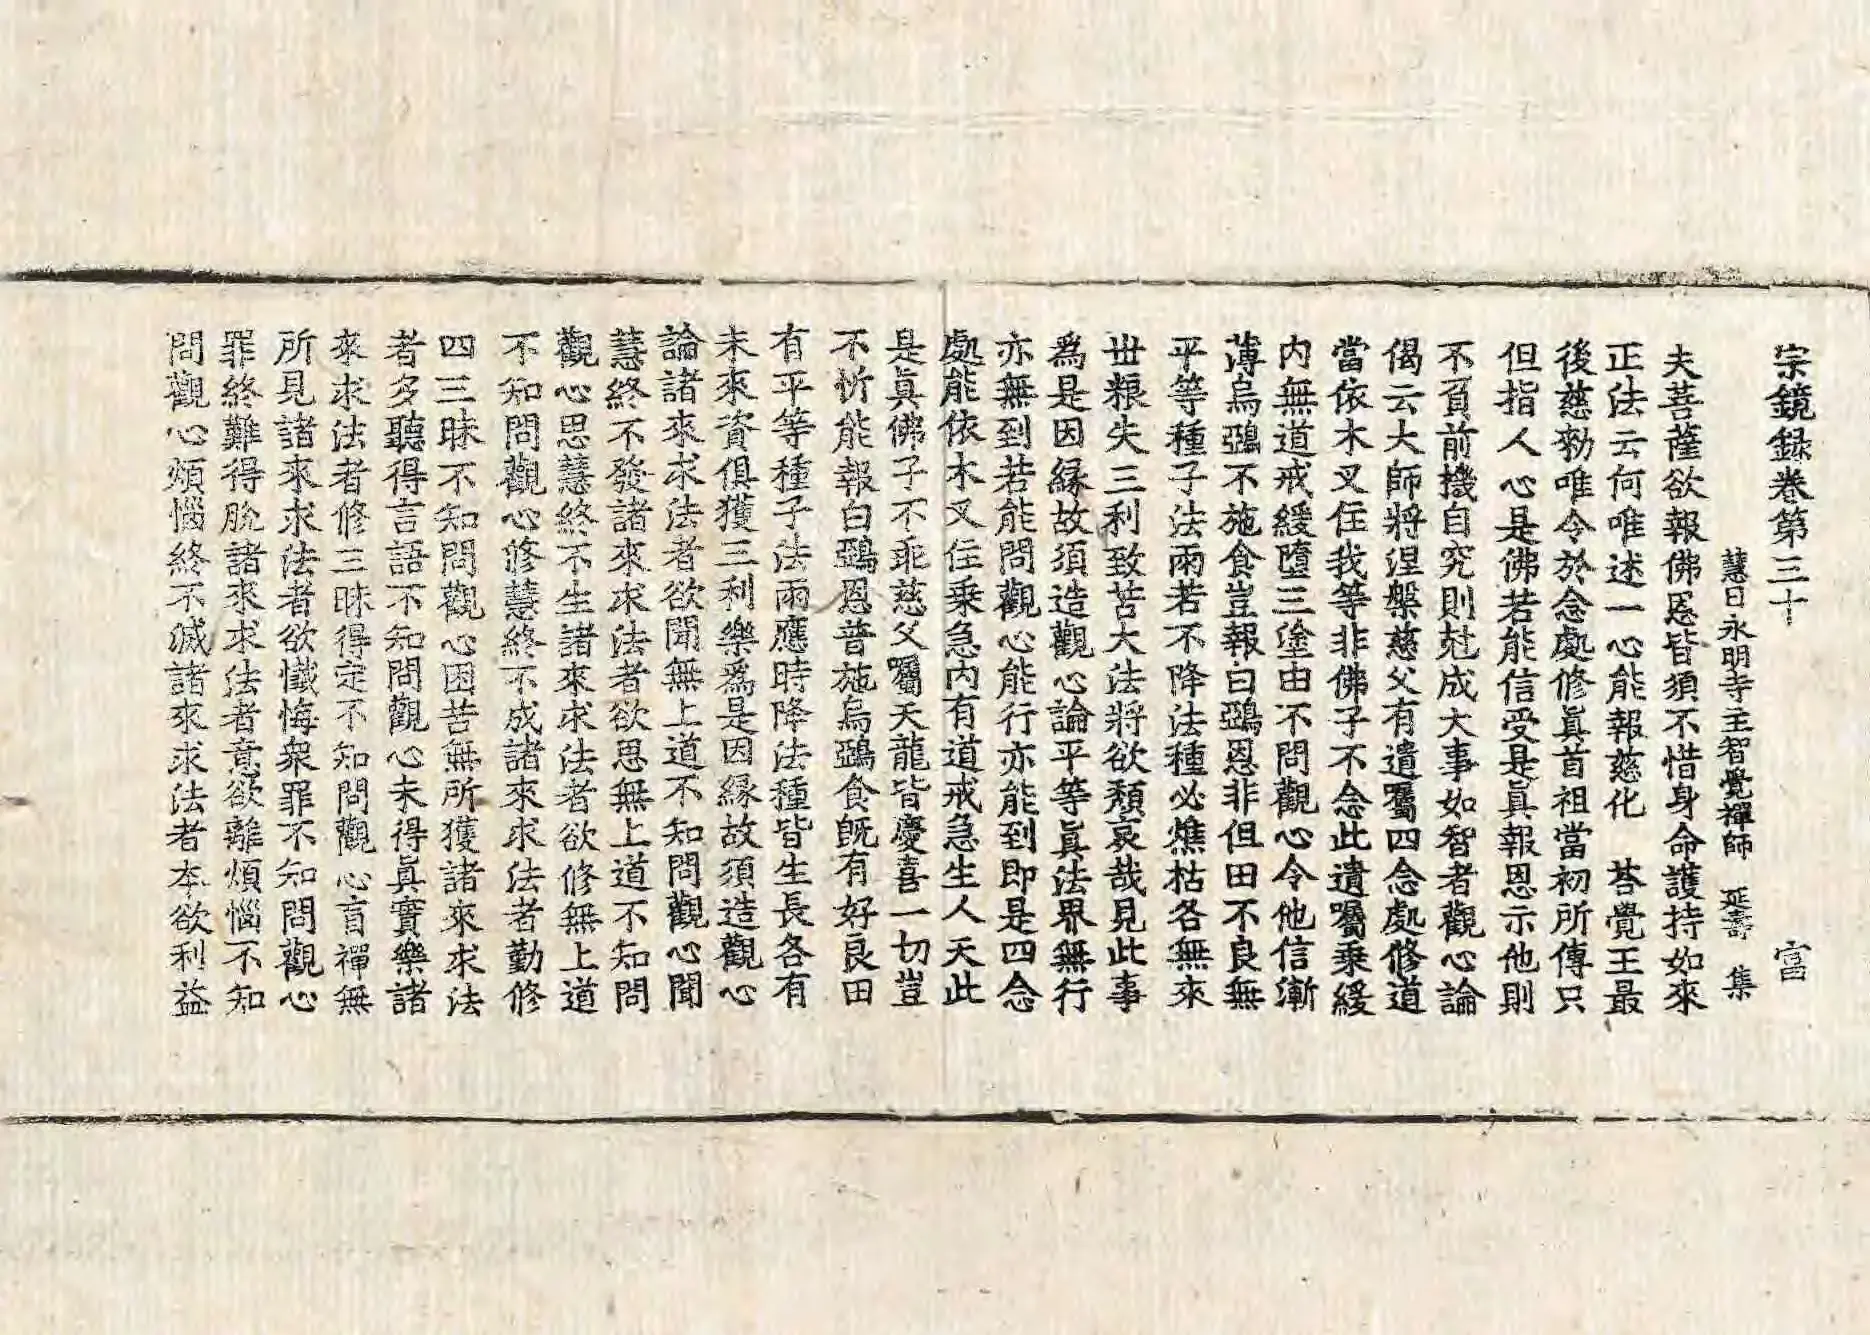 宗鏡錄卷第三十　富
慧日永明寺主智覺禪師　延壽　集
夫菩薩欲報佛恩皆須不惜身命護持如來
正法云何唯述一心能報慈化　荅覺王最
後慈勑唯令於念處修眞首祖當初所傳只
但指人心是佛若能信受是眞報恩示他則
不負前機自究則尅成大事如智者觀心論
偈云大師將涅槃慈父有遺囑四念處修道
當依木叉住我等非佛子不念此遺囑乗緩
内無道戒緩墮三塗由不問觀心令他信漸
薄烏鵶不施食豈報白鵶恩非但田不良無
平等種子法雨若不降法種必燋枯各無來
世粮失三利致苦大法將欲頽哀哉見此事
爲是因縁故須造觀心論平等眞法界無行
亦無到若能問觀心能行亦能到即是四念
處能依木叉住乗急内有道戒急生人天此
是眞佛子不乖慈父囑天龍皆慶喜一切豈
不忻能報白鵶恩普施烏鵶食旣有好良田
有平等種子法雨應時降法種皆生長各有
未來資俱獲三利樂爲是因縁故須造觀心
論諸來求法者欲聞無上道不知問觀心聞
慧終不發諸來求法者欲思無上道不知問
觀心思慧終不生諸來求法者欲修無上道
不知問觀心修慧終不成諸來求法者勤修
四三昧不知問觀心困苦無所獲諸來求法
者多聽得言語不知問觀心未得眞實樂諸
來求法者修三昧得定不知問觀心盲禪無
所見諸來求法者欲懺悔衆罪不知問觀心
罪終難得脫諸來求法者意欲離煩惱不知
問觀心煩惱終不滅諸來求法者本欲利益